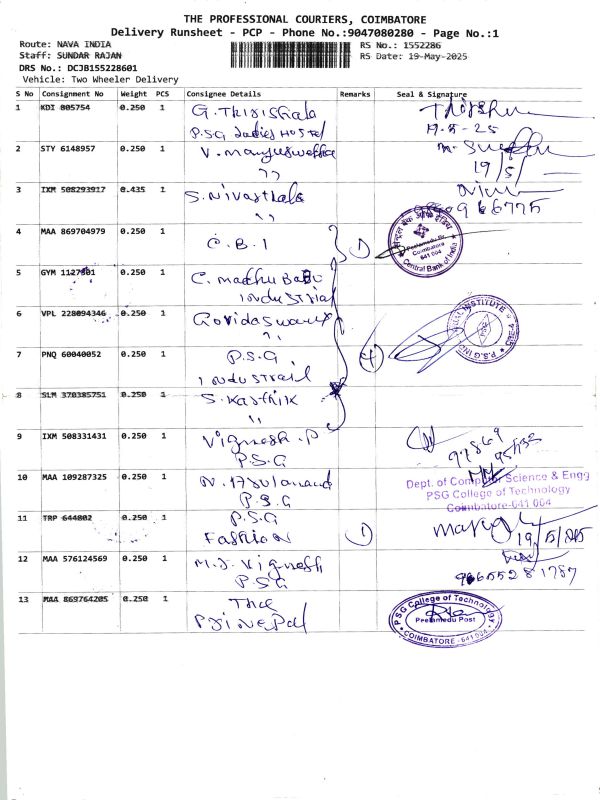 THE PROFESSIONAL COURIERS, COIMBATORE
Delivery Runsheet - PCP - Phone No.:9047080280 - Page No.:1
Route: NAVA INDIA
Staff: SUNDAR RAJAN
DRS No.: DCJB155228601
Vehicle: Two Wheeler Delivery
RS No.: 1552286
RS Date: 19-May-2025
S No Consignment No Weight PCS Consignee Details Remarks Seal & Signature
1 KDI 805754 0.250 1
P.SG Ladies Hostel
19-5-25
2 STY 6148957 0.250 1 V.
19/5/
3 IXM 508293917 0.435 1 S. Nivasthala
4 MAA 869704979 0.250 1 C.B.I 1
Peelamedu Br.
Coimbatore
641 004
Central Bank of India
5 GYM 1127801 0.250 1 C. madhu Babu
industrial
6 VPL 228094346 0.250 1
P.S.G. INDUSTRIAL INSTITUTE
7 PNQ 60040052 0.250 1 P.S.G 4
industrial
8 SLM 370385751 0.250 1 S. Karthik
9 IXM 508331431 0.250 1 Vignesh .P
P.S.G
10 MAA 109287325 0.250 1 N.
P.S.G
Dept. of Computer Science & Engg
PSG College of Technology
Coimbatore-641 004
11 TRP 644802 0.250 1 P.S.G
Fashion 1
12 MAA 576124569 0.250 1 M.J. Vignesh
P.S.G
13 MAA 869764205 0.250 1 The
PSG College of Technology
Peelamedu Post
COIMBATORE - 641 004